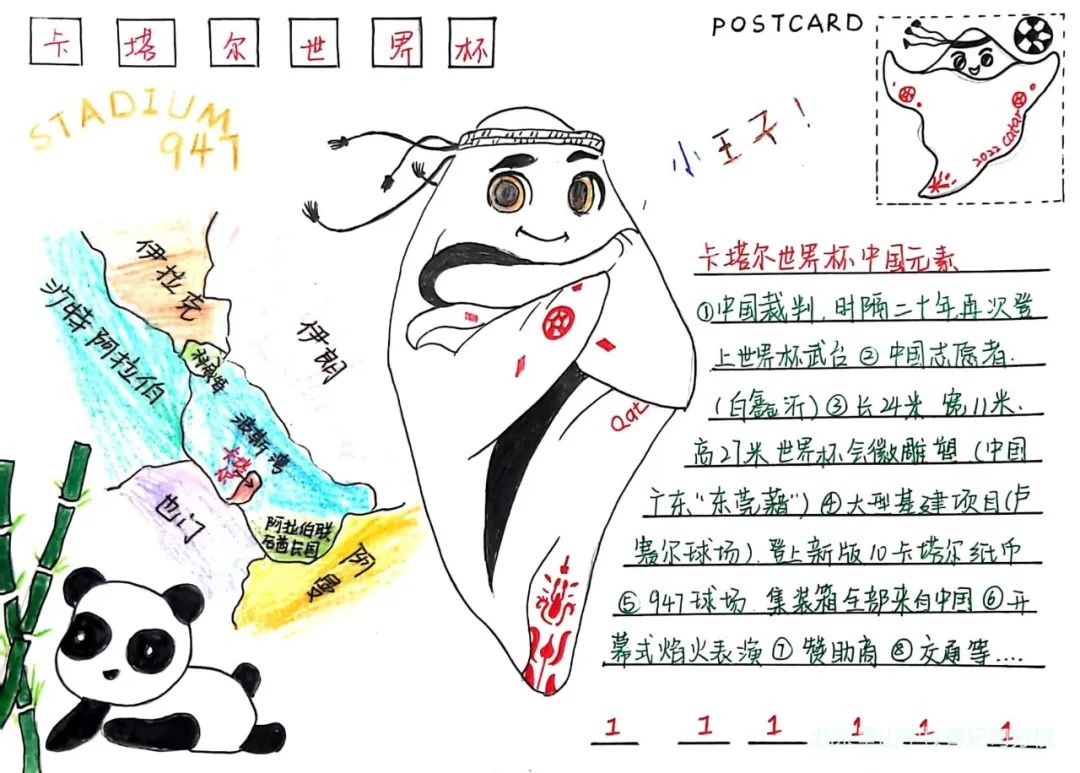 卡塔尔世界杯
POSTCARD
STADIUM
947
小王子！
2022 Qatar
伊拉克
沙特阿拉伯
伊朗
科威特
波斯湾
卡塔尔
也门
阿拉伯联
合酋长国
阿曼
Qat
卡塔尔世界杯中国元素
①中国裁判，时隔二十年再次登
上世界杯武台②中国志愿者.
(白鑫沂)③长24米 宽11米.
高27米世界杯会徽雕塑（中国
广东“东莞籍”）④大型基建项目(卢
赛尔球场).登上新版10卡塔尔纸币
⑤947球场.集装箱全部来自中国⑥开
幕式焰火表演⑦赞助商⑧交通等....
1 1 1 1 1 1